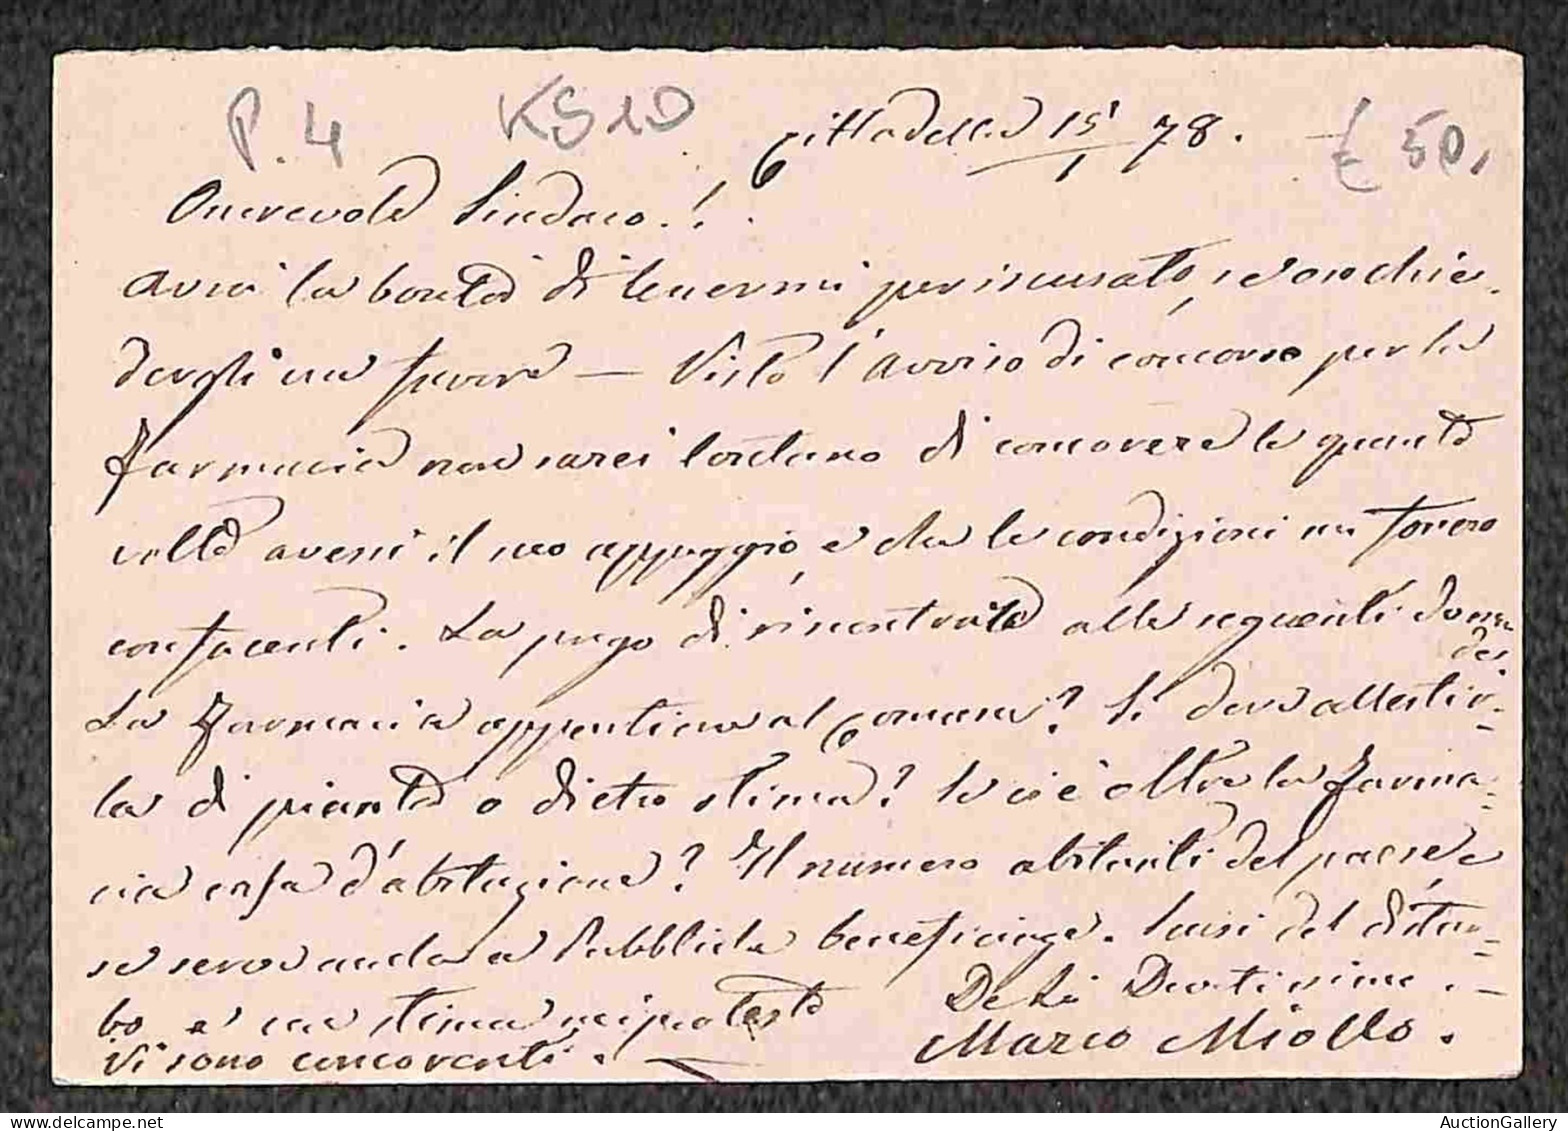 P. 4 KS10 Cittadella 15/1 78. £ 50,
Onorevole Sindaco!
Avrà la bontà di tenermi per iscusato, se oso chie-
dergli un favore — Visto l'avviso di concorso per la
farmacia non sarei lontano di concorere se quante
volte avessi il suo appoggio, e che le condizioni mi fossero
confacenti. La prego di riscontrate alle seguenti doman
des
La Farmacia appartiene al Comune? Si deve allestir-
la di pianta o dietro stima? Se vi è oltre la Farma-
cia casa d'abitazione? Il numero abitanti del paese e
se serve anche a Pubblica beneficenza. Scusi del distur-
bo e con stima mi protesto Di Lei Devotissimo
Vi sono concorenti. Marco Miollo.
AuctionGallery